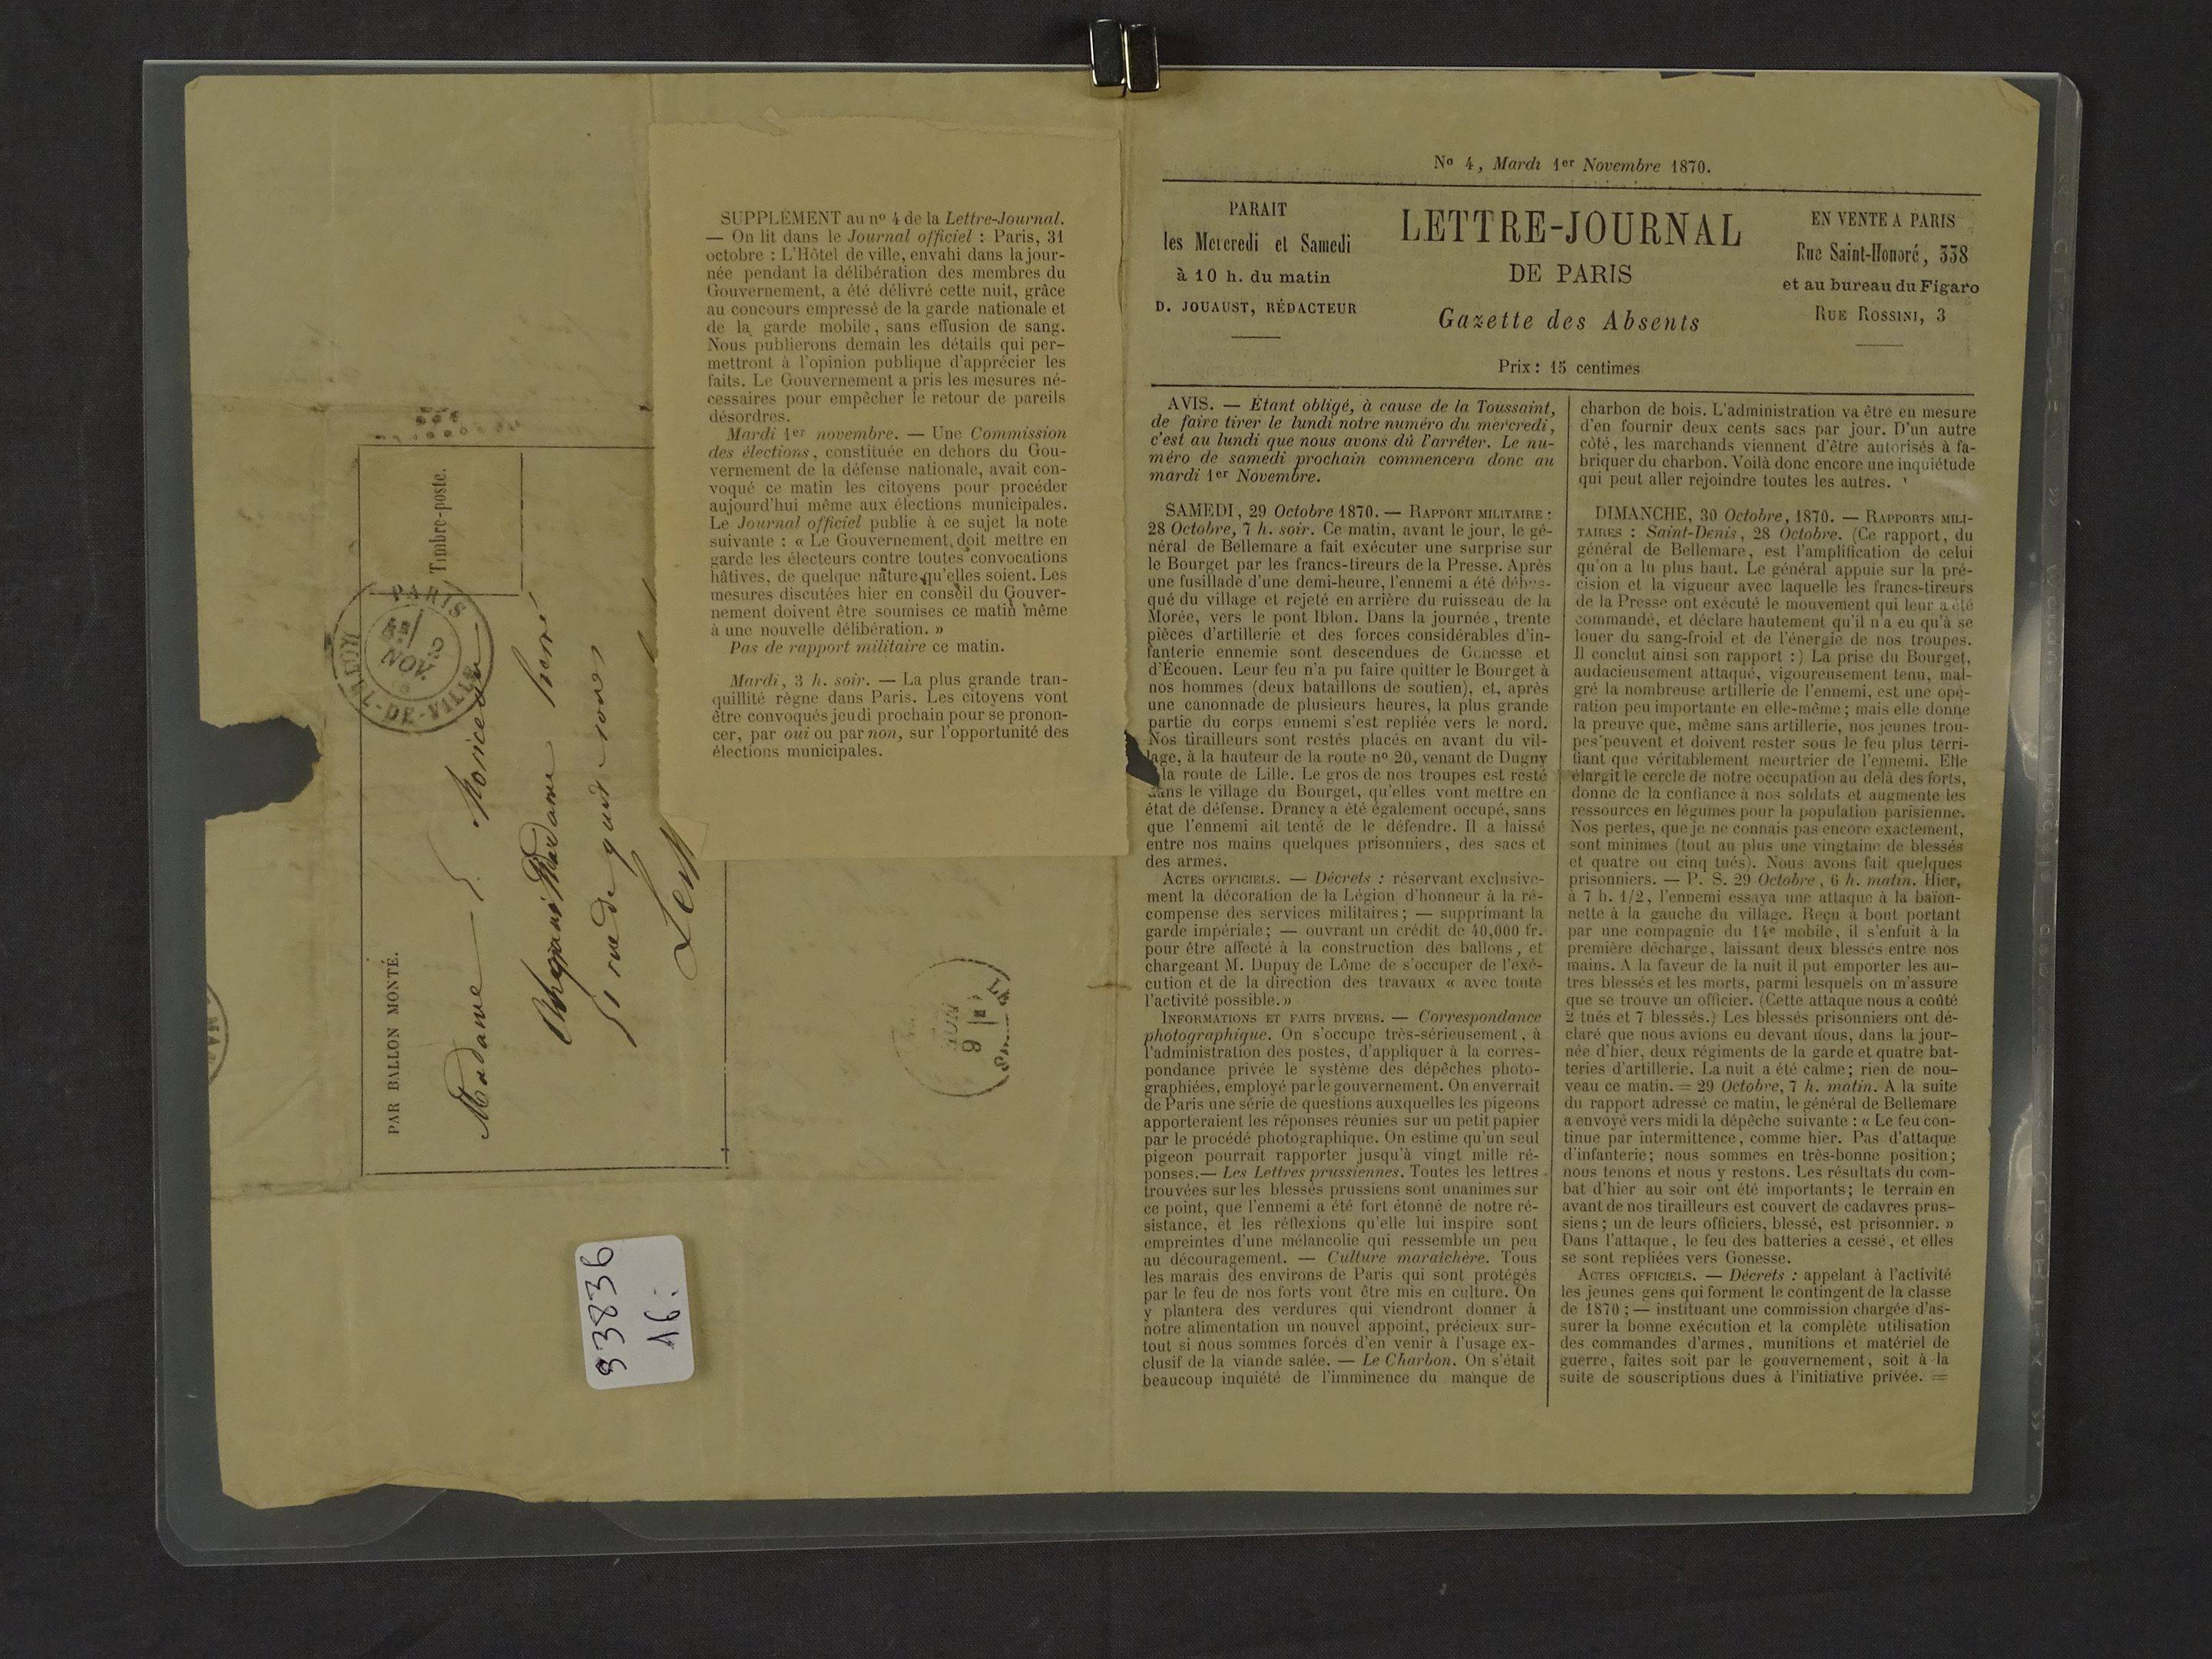 PAR BALLON MONTÉ.
Timbre-poste.
PARIS
5E/
2
NOV.
Madame
Madame
rue de
33836
16:
SUPPLÉMENT au nº 4 de la Lettre-Journal.
— On lit dans le Journal officiel : Paris, 31
octobre : L'Hôtel de ville, envahi dans la jour-
née pendant la délibération des membres du
Gouvernement, a été délivré cette nuit, grâce
au concours empressé de la garde nationale et
de la garde mobile, sans effusion de sang.
Nous publierons demain les détails qui per-
mettront à l'opinion publique d'apprécier les
faits. Le Gouvernement a pris les mesures né-
cessaires pour empêcher le retour de pareils
désordres.
Mardi 1er novembre. — Une Commission
des élections, constituée en dehors du Gou-
vernement de la défense nationale, avait con-
voqué ce matin les citoyens pour procéder
aujourd'hui même aux élections municipales.
Le Journal officiel publie à ce sujet la note
suivante : « Le Gouvernement doit mettre en
garde les électeurs contre toutes convocations
hâtives, de quelque nature qu'elles soient. Les
mesures discutées hier en conseil du Gouver-
nement doivent être soumises ce matin même
à une nouvelle délibération. »
Pas de rapport militaire ce matin.
Mardi, 3 h. soir. — La plus grande tran-
quillité règne dans Paris. Les citoyens vont
être convoqués jeudi prochain pour se pronon-
cer, par oui ou par non, sur l'opportunité des
élections municipales.
Nº 4, Mardi 1er Novembre 1870.
PARAIT
les Mercredi et Samedi
à 10 h. du matin
D. JOUAUST, RÉDACTEUR
LETTRE-JOURNAL
DE PARIS
Gazette des Absents
Prix : 15 centimes
EN VENTE A PARIS
Rue Saint-Honoré, 338
et au bureau du Figaro
RUE ROSSINI, 3
AVIS. — Étant obligé, à cause de la Toussaint,
de faire tirer le lundi notre numéro du mercredi,
c'est au lundi que nous avons dû l'arrêter. Le nu-
méro de samedi prochain commencera donc au
mardi 1er Novembre.
SAMEDI, 29 Octobre 1870. — RAPPORT MILITAIRE :
28 Octobre, 7 h. soir. Ce matin, avant le jour, le gé-
néral de Bellemare a fait exécuter une surprise sur
le Bourget par les francs-tireurs de la Presse. Après
une fusillade d'une demi-heure, l'ennemi a été débus-
qué du village et rejeté en arrière du ruisseau de la
Morée, vers le pont Iblon. Dans la journée, trente
pièces d'artillerie et des forces considérables d'in-
fanterie ennemie sont descendues de Gonesse et
d'Écouen. Leur feu n'a pu faire quitter le Bourget à
nos hommes (deux bataillons de soutien), et, après
une canonnade de plusieurs heures, la plus grande
partie du corps ennemi s'est repliée vers le nord.
Nos tirailleurs sont restés placés en avant du vil-
lage, à la hauteur de la route nº 20, venant de Dugny
la route de Lille. Le gros de nos troupes est resté
dans le village du Bourget, qu'elles vont mettre en
état de défense. Drancy a été également occupé, sans
que l'ennemi ait tenté de le défendre. Il a laissé
entre nos mains quelques prisonniers, des sacs et
des armes.
ACTES OFFICIELS. — Décrets : réservant exclusive-
ment la décoration de la Légion d'honneur à la ré-
compense des services militaires ; — supprimant la
garde impériale ; — ouvrant un crédit de 40,000 fr.
pour être affecté à la construction des ballons, et
chargeant M. Dupuy de Lôme de s'occuper de l'exé-
cution et de la direction des travaux « avec toute
l'activité possible. »
INFORMATIONS ET FAITS DIVERS. — Correspondance
photographique. On s'occupe très-sérieusement, à
l'administration des postes, d'appliquer à la corres-
pondance privée le système des dépêches photo-
graphiées, employé par le gouvernement. On enverrait
de Paris une série de questions auxquelles les pigeons
apporteraient les réponses réunies sur un petit papier
par le procédé photographique. On estime qu'un seul
pigeon pourrait rapporter jusqu'à vingt mille ré-
ponses. — Les Lettres prussiennes. Toutes les lettres
trouvées sur les blessés prussiens sont unanimes sur
ce point, que l'ennemi a été fort étonné de notre ré-
sistance, et les réflexions qu'elle lui inspire sont
empreintes d'une mélancolie qui ressemble un peu
au découragement. — Culture maraîchère. Tous
les marais des environs de Paris qui sont protégés
par le feu de nos forts vont être mis en culture. On
y plantera des verdures qui viendront donner à
notre alimentation un nouvel appoint, précieux sur-
tout si nous sommes forcés d'en venir à l'usage ex-
clusif de la viande salée. — Le Charbon. On s'était
beaucoup inquiété de l'imminence du manque de
charbon de bois. L'administration va être en mesure
d'en fournir deux cents sacs par jour. D'un autre
côté, les marchands viennent d'être autorisés à fa-
briquer du charbon. Voilà donc encore une inquiétude
qui peut aller rejoindre toutes les autres.
DIMANCHE, 30 Octobre, 1870. — RAPPORTS MILI-
TAIRES : Saint-Denis, 28 Octobre. (Ce rapport, du
général de Bellemare, est l'amplification de celui
qu'on a lu plus haut. Le général appuie sur la pré-
cision et la vigueur avec laquelle les francs-tireurs
de la Presse ont exécuté le mouvement qui leur a été
commandé, et déclare hautement qu'il n'a eu qu'à se
louer du sang-froid et de l'énergie de nos troupes.
Il conclut ainsi son rapport :) La prise du Bourget,
audacieusement attaqué, vigoureusement tenu, mal-
gré la nombreuse artillerie de l'ennemi, est une opé-
ration peu importante en elle-même ; mais elle donne
la preuve que, même sans artillerie, nos jeunes trou-
pes peuvent et doivent rester sous le feu plus terri-
fiant que véritablement meurtrier de l'ennemi. Elle
élargit le cercle de notre occupation au delà des forts,
donne de la confiance à nos soldats et augmente les
ressources en légumes pour la population parisienne.
Nos pertes, que je ne connais pas encore exactement,
sont minimes (tout au plus une vingtaine de blessés
et quatre ou cinq tués). Nous avons fait quelques
prisonniers. — P. S. 29 Octobre, 6 h. matin. Hier,
à 7 h. 1/2, l'ennemi essaya une attaque à la baïon-
nette à la gauche du village. Reçu à bout portant
par une compagnie du 14e mobile, il s'enfuit à la
première décharge, laissant deux blessés entre nos
mains. A la faveur de la nuit il put emporter les au-
tres blessés et les morts, parmi lesquels on m'assure
que se trouve un officier. (Cette attaque nous a coûté
2 tués et 7 blessés.) Les blessés prisonniers ont dé-
claré que nous avions eu devant nous, dans la jour-
née d'hier, deux régiments de la garde et quatre bat-
teries d'artillerie. La nuit a été calme ; rien de nou-
veau ce matin. = 29 Octobre, 7 h. matin. A la suite
du rapport adressé ce matin, le général de Bellemare
a envoyé vers midi la dépêche suivante : « Le feu con-
tinue par intermittence, comme hier. Pas d'attaque
d'infanterie ; nous sommes en très-bonne position ;
nous tenons et nous y restons. Les résultats du com-
bat d'hier au soir ont été importants ; le terrain en
avant de nos tirailleurs est couvert de cadavres prus-
siens ; un de leurs officiers, blessé, est prisonnier. »
Dans l'attaque, le feu des batteries a cessé, et elles
se sont repliées vers Gonesse.
ACTES OFFICIELS. — Décrets : appelant à l'activité
les jeunes gens qui forment le contingent de la classe
de 1870 ; — instituant une commission chargée d'as-
surer la bonne exécution et la complète utilisation
des commandes d'armes, munitions et matériel de
guerre, faites soit par le gouvernement, soit à la
suite de souscriptions dues à l'initiative privée. =